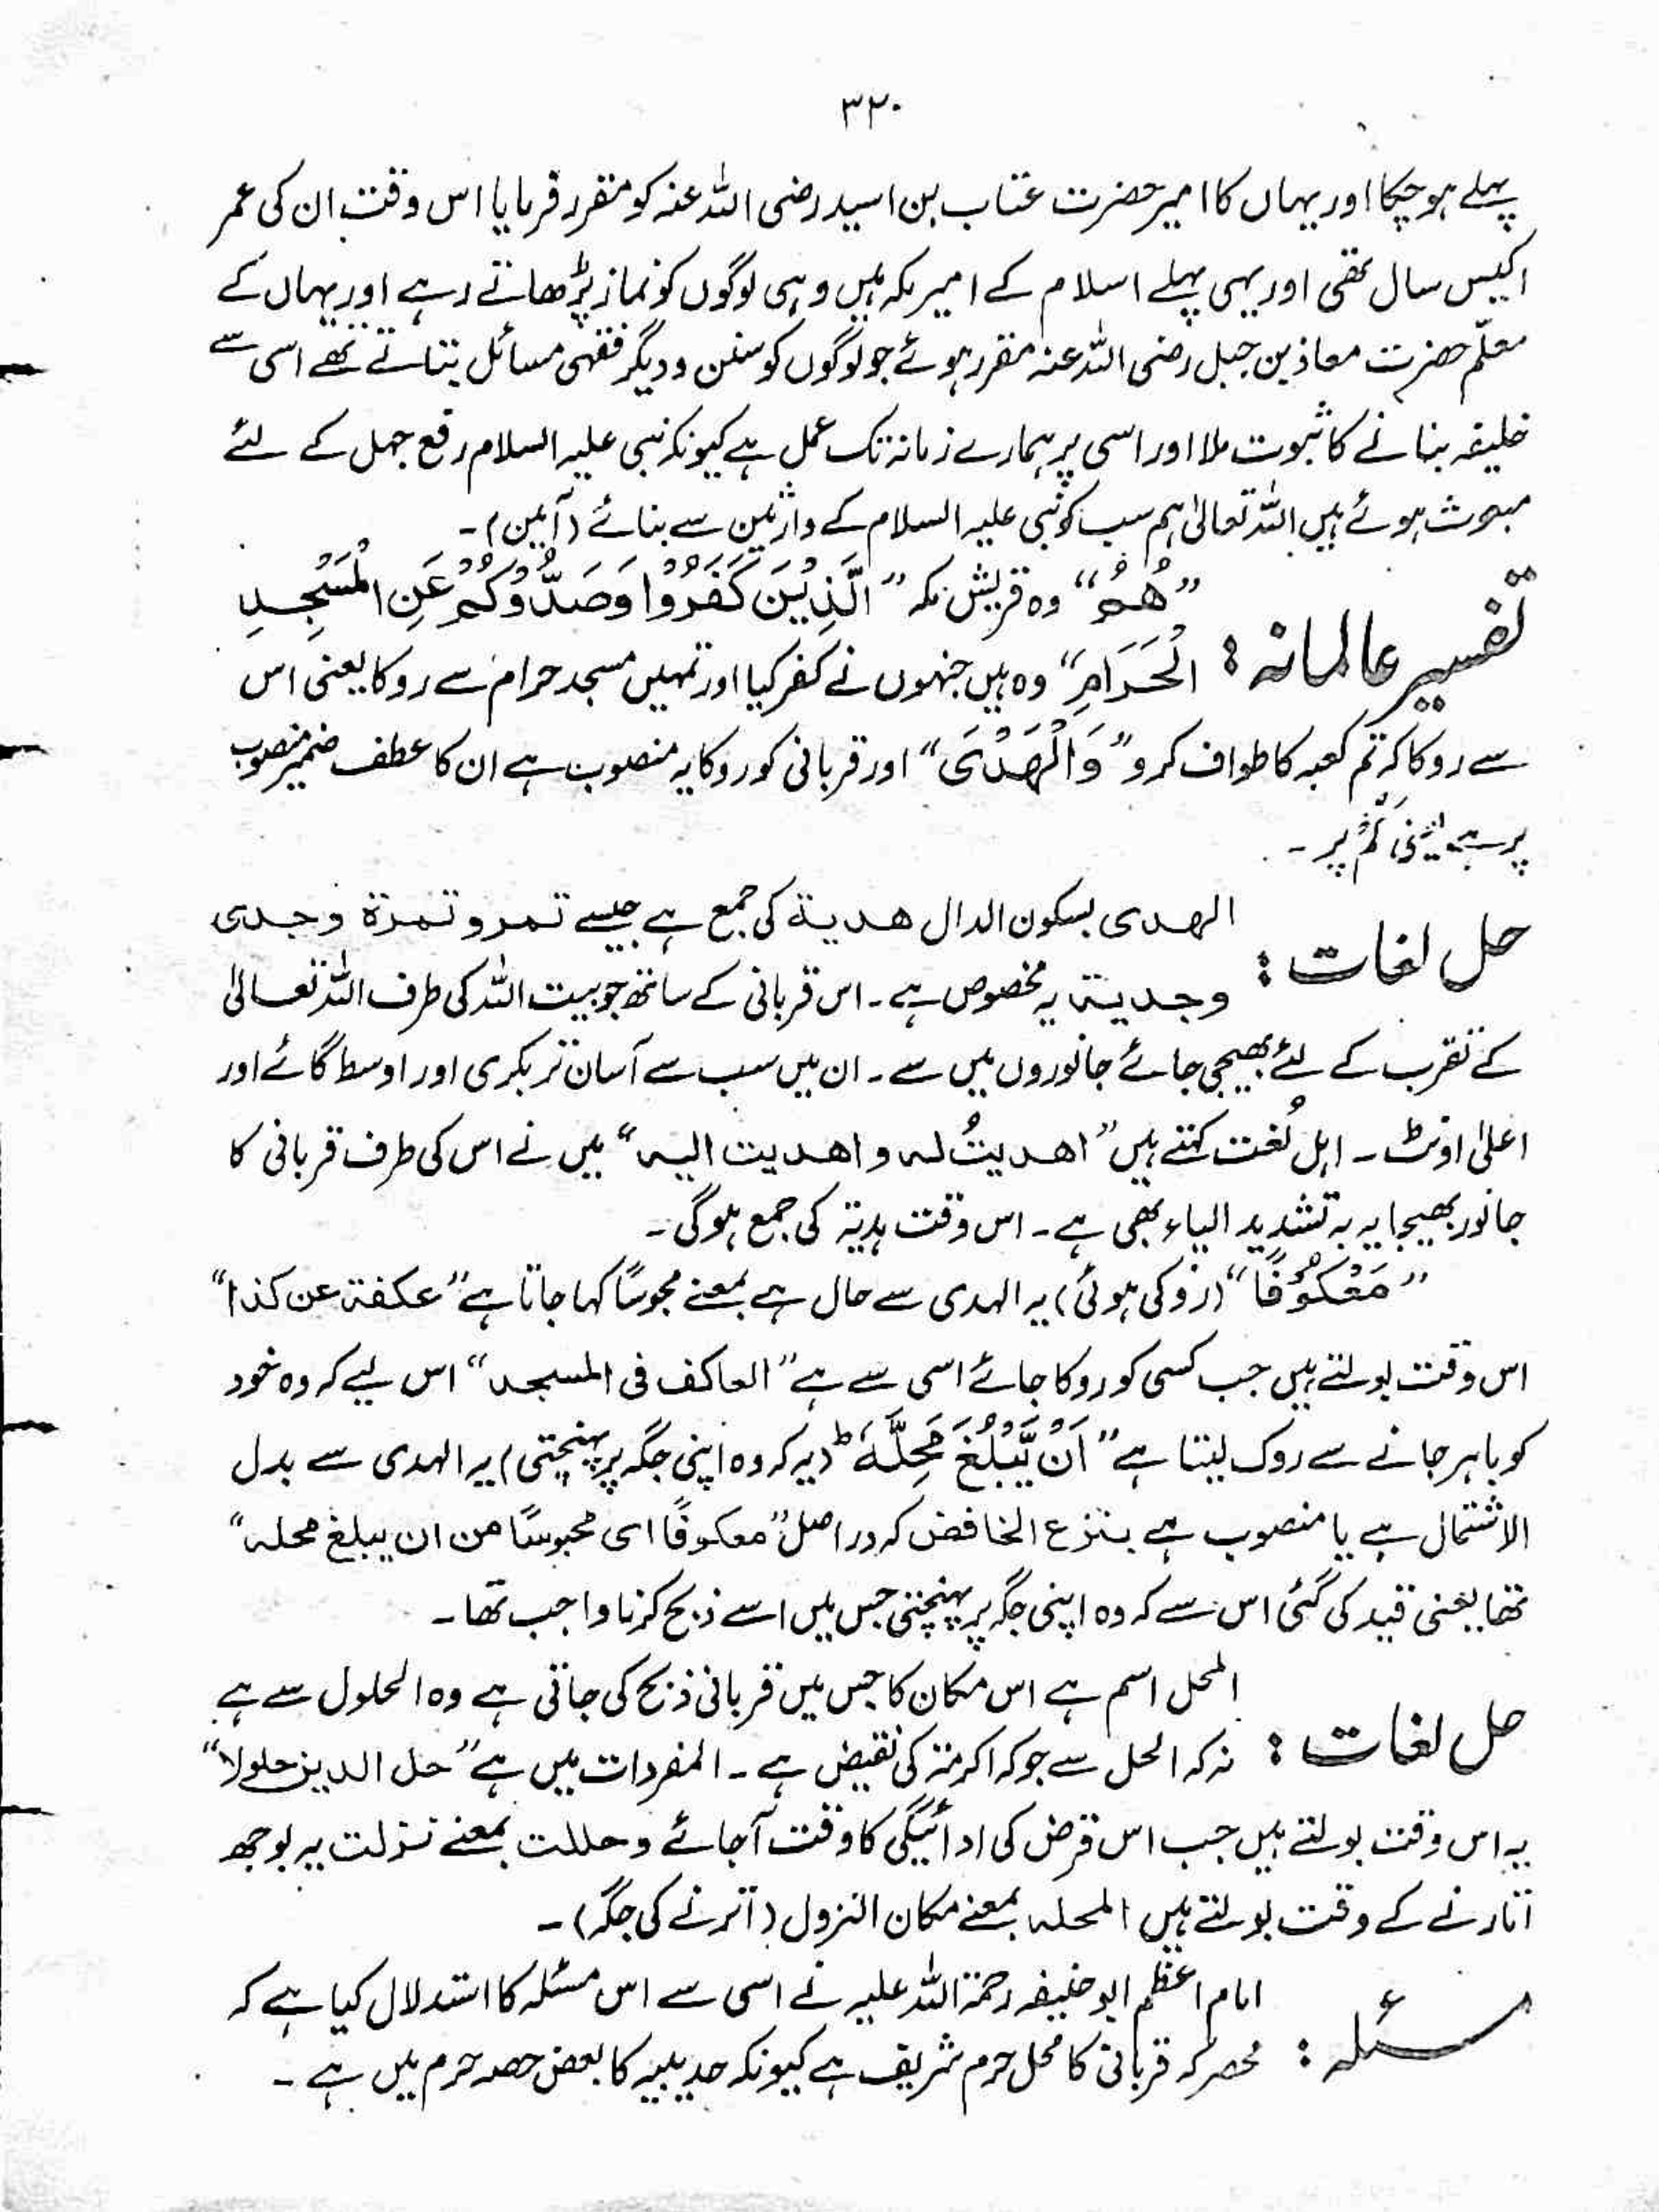 ۳۲۰
پہلے ہو چکا اور یہاں کا امیر حضرت عتاب بن اسید رضی اللہ عنہ کو مقرر فرمایا اس وقت ان کی عمر
اکیس سال تھی اور یہی پہلے اسلام کے امیر مکہ ہیں وہی لوگوں کو نماز پڑھاتے رہے اور یہاں کے
معلّم حضرت معاذ بن جبل رضی اللہ عنہ مقرر ہوئے جو لوگوں کو سنن و دیگر فقہی مسائل بتاتے تھے اسی سے
خلیفہ بنانے کا ثبوت ملا اور اسی پر ہمارے زمانہ تک عمل ہے کیونکہ نبی علیہ السلام رفع جہل کے لئے
مبعوث ہوئے ہیں اللہ تعالیٰ ہم سب کو نبی علیہ السلام کے وارثین سے بنائے (آمین)۔
تفسیر عالمانہ : ”هُمُ“ وہ قریش مکہ ”الَّذِیْنَ كَفَرُوْا وَصَدُّوْكُمْ عَنِ الْمَسْجِدِ
الْحَرَامِ“ وہ ہیں جنہوں نے کفر کیا اور تمہیں مسجد حرام سے روکا یعنی اس
سے روکا کہ تم کعبہ کا طواف کرو ”وَالْهَدْیَ“ اور قربانی کو روکا یہ منصوب ہے ان کا عطف ضمیر منصوب
پر ہے یعنی كُمْ پر ۔
حل لغات : الهدى بسکون الدال هدية کی جمع ہے جیسے تمر و تمرة وجدى
وجدية یہ مخصوص ہے ۔ اس قربانی کے ساتھ جو بیت اللہ کی طرف اللہ تعالیٰ
کے تقرب کے لئے بھیجی جائے جانوروں میں سے ۔ ان میں سب سے آسان تر بکری اور اوسط گائے اور
اعلیٰ اونٹ ۔ اہل لُغت کہتے ہیں ”اهديتُ له و اهديت اليه“ میں نے اس کی طرف قربانی کا
جانور بھیجا یہ بہ تشدید الیاء بھی ہے ۔ اس وقت ہدیۃ کی جمع ہوگی ۔
”مَعْكُوْفًا“ (روکی ہوئی) یہ الہدی سے حال ہے بمعنے محبوسًا کہا جاتا ہے ”عكفته عن كذا“
اس وقت بولتے ہیں جب کسی کو روکا جائے اسی سے ہے ”العاكف فی المسجد“ اس لیے کہ وہ خود
کو باہر جانے سے روک لیتا ہے ”اَنْ یَّبْلُغَ مَحِلَّهٗ ؕ (یہ کہ وہ اپنی جگہ پر پہنچتی) یہ الہدی سے بدل
الاشتمال ہے یا منصوب ہے بنزع الخافض کہ دراصل ”معكوفًا اى محبوسًا من ان يبلغ محله“
تھا یعنی قید کی گئی اس سے کہ وہ اپنی جگہ پر پہنچتی جس میں اسے ذبح کرنا واجب تھا ۔
حل لغات : المحل اسم ہے اس مکان کا جس میں قربانی ذبح کی جاتی ہے وہ الحلول سے ہے
نہ کہ الحل سے جو کہ اکرمتہ کی نقیض ہے ۔ المفردات میں ہے ”حل الدين حلولا“
یہ اس وقت بولتے ہیں جب اس قرض کی ادائیگی کا وقت آجائے و حللت بمعنے نزلت یہ بوجھ
اتارنے کے وقت بولتے ہیں المحلہ بمعنے مکان النزول (اترنے کی جگہ) ۔
مسئلہ : امام اعظم ابو حنیفہ رحمۃ اللہ علیہ نے اسی سے اس مسئلہ کا استدلال کیا ہے کہ
محصر کہ قربانی کا محل حرم شریف ہے کیونکہ حدیبیہ کا بعض حصہ حرم میں ہے ۔